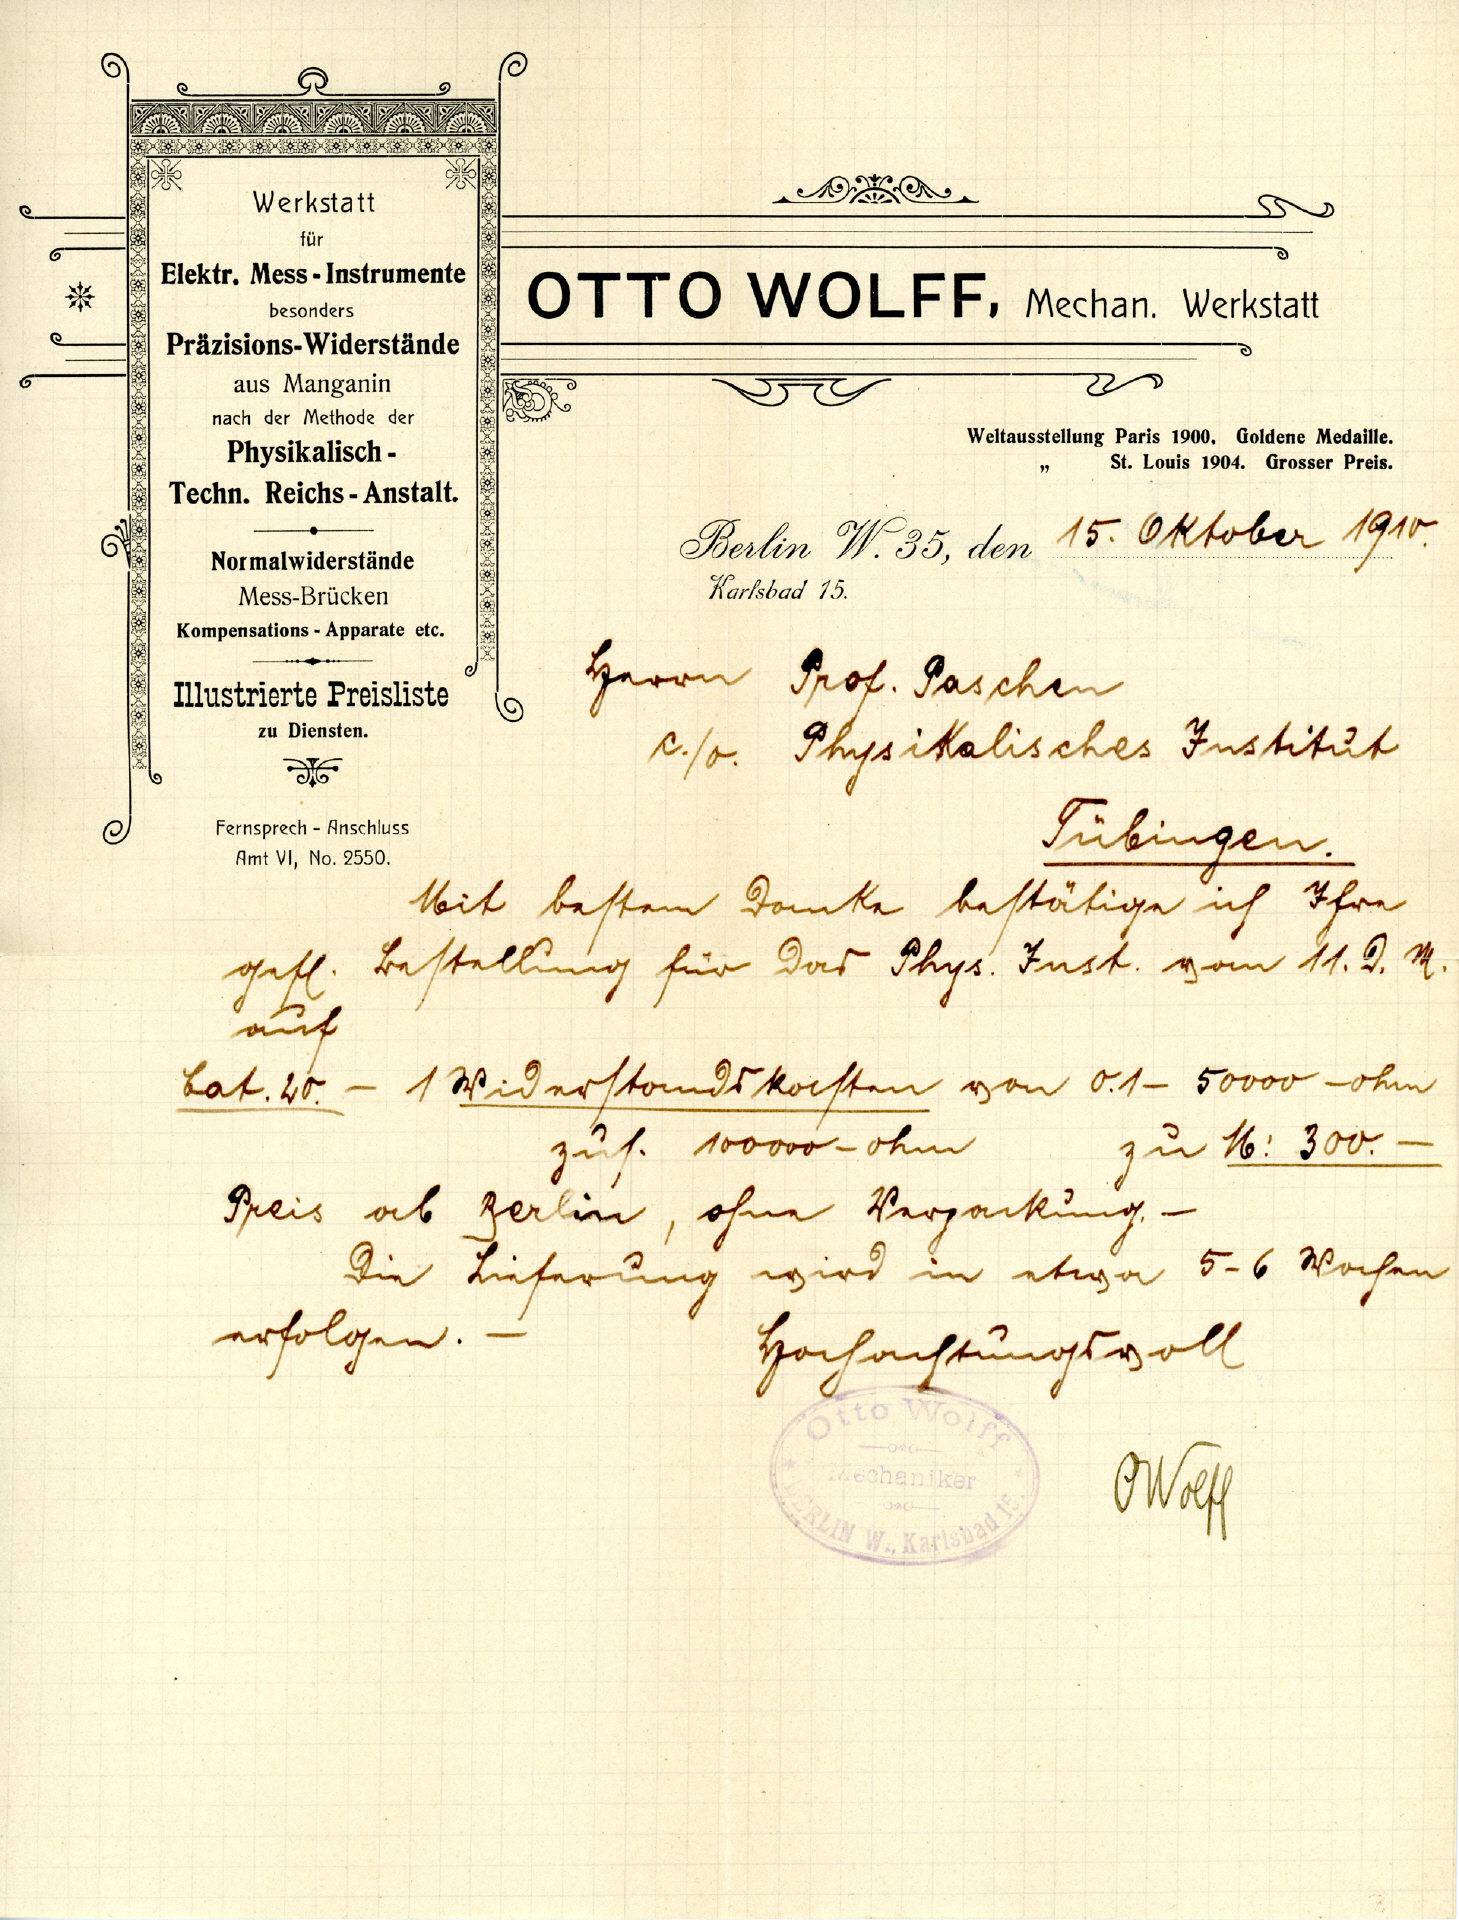 Werkstatt
für
Elektr. Mess-Instrumente
besonders
Präzisions-Widerstände
aus Manganin
nach der Methode der
Physikalisch-
Techn. Reichs-Anstalt.
Normalwiderstände
Mess-Brücken
Kompensations-Apparate etc.
Illustrierte Preisliste
zu Diensten.
Fernsprech-Anschluss
Amt VI, No. 2550.
OTTO WOLFF, Mechan. Werkstatt
Weltausstellung Paris 1900. Goldene Medaille.
„ St. Louis 1904. Grosser Preis.
Berlin W. 35, den 15. Oktober 1910.
Karlsbad 15.
Herrn Prof. Paschen
c./o. Physikalisches Institut
Tübingen.
Mit bestem Danke bestätige ich Ihre
gefl. Bestellung für das Phys. Inst. vom 11. d. M.
auf
Cat. 20. – 1 Widerstandskasten von 0.1 – 50000 – ohm
zus. 100000 – ohm zu M: 300. –
Preis ab Berlin, ohne Verpackung. –
Die Lieferung wird in etwa 5–6 Wochen
erfolgen. –
Hochachtungsvoll
Otto Wolff
Mechaniker
BERLIN W., Karlsbad 15.
OWolff